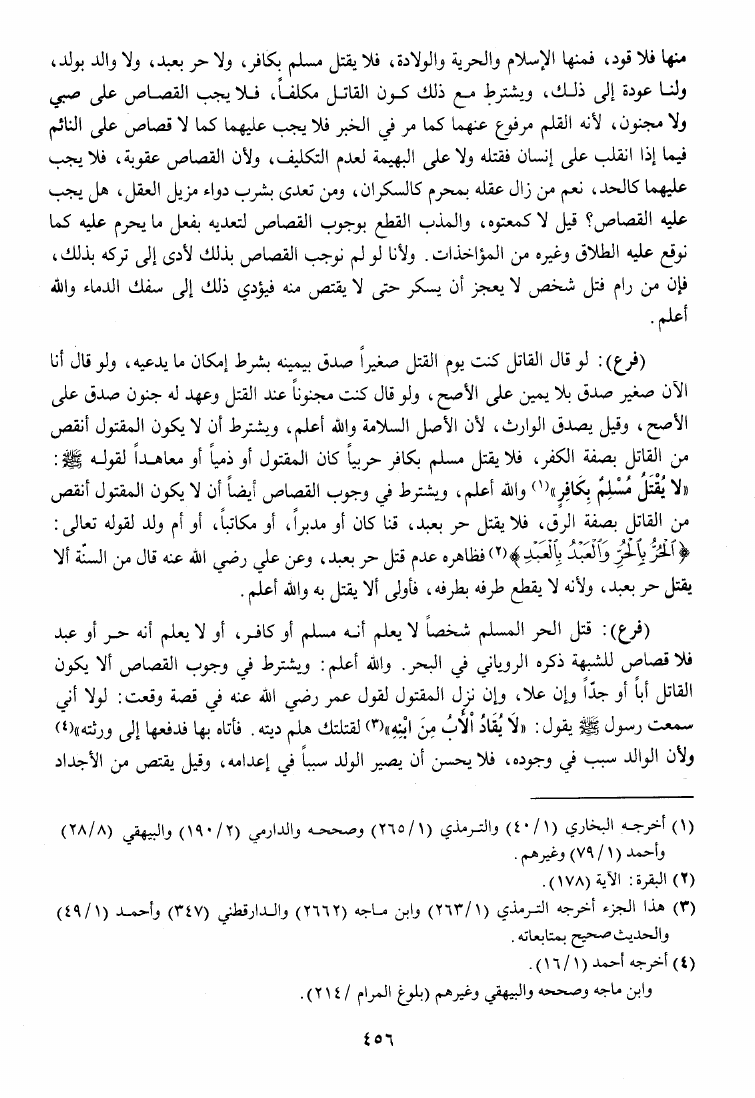 منها فلا قود، فمنها الإسلام والحرية والولادة، فلا يقتل مسلم بكافر، ولا حر بعبد، ولا والد بولد،
ولنا عودة إلى ذلك، ويشترط مع ذلك كون القاتل مكلفاً، فلا يجب القصاص على صبي
ولا مجنون، لأنه القلم مرفوع عنهما كما مر في الخبر فلا يجب عليهما كما لا قصاص على النائم
فيما إذا انقلب على إنسان فقتله ولا على البهيمة لعدم التكليف، ولأن القصاص عقوبة، فلا يجب
عليهما كالحد، نعم من زال عقله بمحرم كالسكران، ومن تعدى بشرب دواء مزيل العقل، هل يجب
عليه القصاص؟ قيل لا كمعتوه، والمذب القطع بوجوب القصاص لتعديه بفعل ما يحرم عليه كما
نوقع عليه الطلاق وغيره من المؤاخذات. ولأنا لو لم نوجب القصاص بذلك لأدى إلى تركه بذلك،
فإن من رام قتل شخص لا يعجز أن يسكر حتى لا يقتص منه فيؤدي ذلك إلى سفك الدماء والله
أعلم.
(فرع): لو قال القاتل كنت يوم القتل صغيراً صدق بيمينه بشرط إمكان ما يدعيه، ولو قال أنا
الآن صغير صدق بلا يمين على الأصح، ولو قال كنت مجنوناً عند القتل وعهد له جنون صدق على
الأصح، وقيل يصدق الوارث، لأن الأصل السلامة والله أعلم، ويشترط أن لا يكون المقتول أنقص
من القاتل بصفة الكفر، فلا يقتل مسلم بكافر حربياً كان المقتول أو ذمياً أو معاهداً لقوله ﷺ:
«لا يُقْتَلُ مُسْلِمٌ بِكَافِرٍ»(١) والله أعلم، ويشترط في وجوب القصاص أيضاً أن لا يكون المقتول أنقص
من القاتل بصفة الرق، فلا يقتل حر بعبد، قنا كان أو مدبراً، أو مكاتباً، أو أم ولد لقوله تعالى:
﴿الْحُرُّ بِالْحُرِّ وَالْعَبْدُ بِالْعَبْدِ﴾(٢) فظاهره عدم قتل حر بعبد، وعن علي رضي الله عنه قال من السنّة ألا
يقتل حر بعبد، ولأنه لا يقطع طرفه بطرفه، فأولى ألا يقتل به والله أعلم.
(فرع): قتل الحر المسلم شخصاً لا يعلم أنه مسلم أو كافر، أو لا يعلم أنه حر أو عبد
فلا قصاص للشبهة ذكره الروياني في البحر. والله أعلم: ويشترط في وجوب القصاص ألا يكون
القاتل أباً أو جدّاً وإن علا، وإن نزل المقتول لقول عمر رضي الله عنه في قصة وقعت: لولا أني
سمعت رسول ﷺ يقول: «لَا يُقَادُ الْأَبُ مِنَ ابْنِهِ»(٣) لقتلتك هلم ديته. فأتاه بها فدفعها إلى ورثته»(٤)
ولأن الوالد سبب في وجوده، فلا يحسن أن يصير الولد سبباً في إعدامه، وقيل يقتص من الأجداد
(١) أخرجه البخاري (٤٠/١) والترمذي (٢٦٥/١) وصححه والدارمي (١٩٠/٢) والبيهقي (٢٨/٨)
وأحمد (٧٩/١) وغيرهم.
(٢) البقرة: الآية (١٧٨).
(٣) هذا الجزء أخرجه الترمذي (٢٦٣/١) وابن ماجه (٢٦٦٢) والدارقطني (٣٤٧) وأحمد (٤٩/١)
والحديث صحيح بمتابعاته.
(٤) أخرجه أحمد (١٦/١).
وابن ماجه وصححه والبيهقي وغيرهم (بلوغ المرام /٢١٤).
٤٥٦